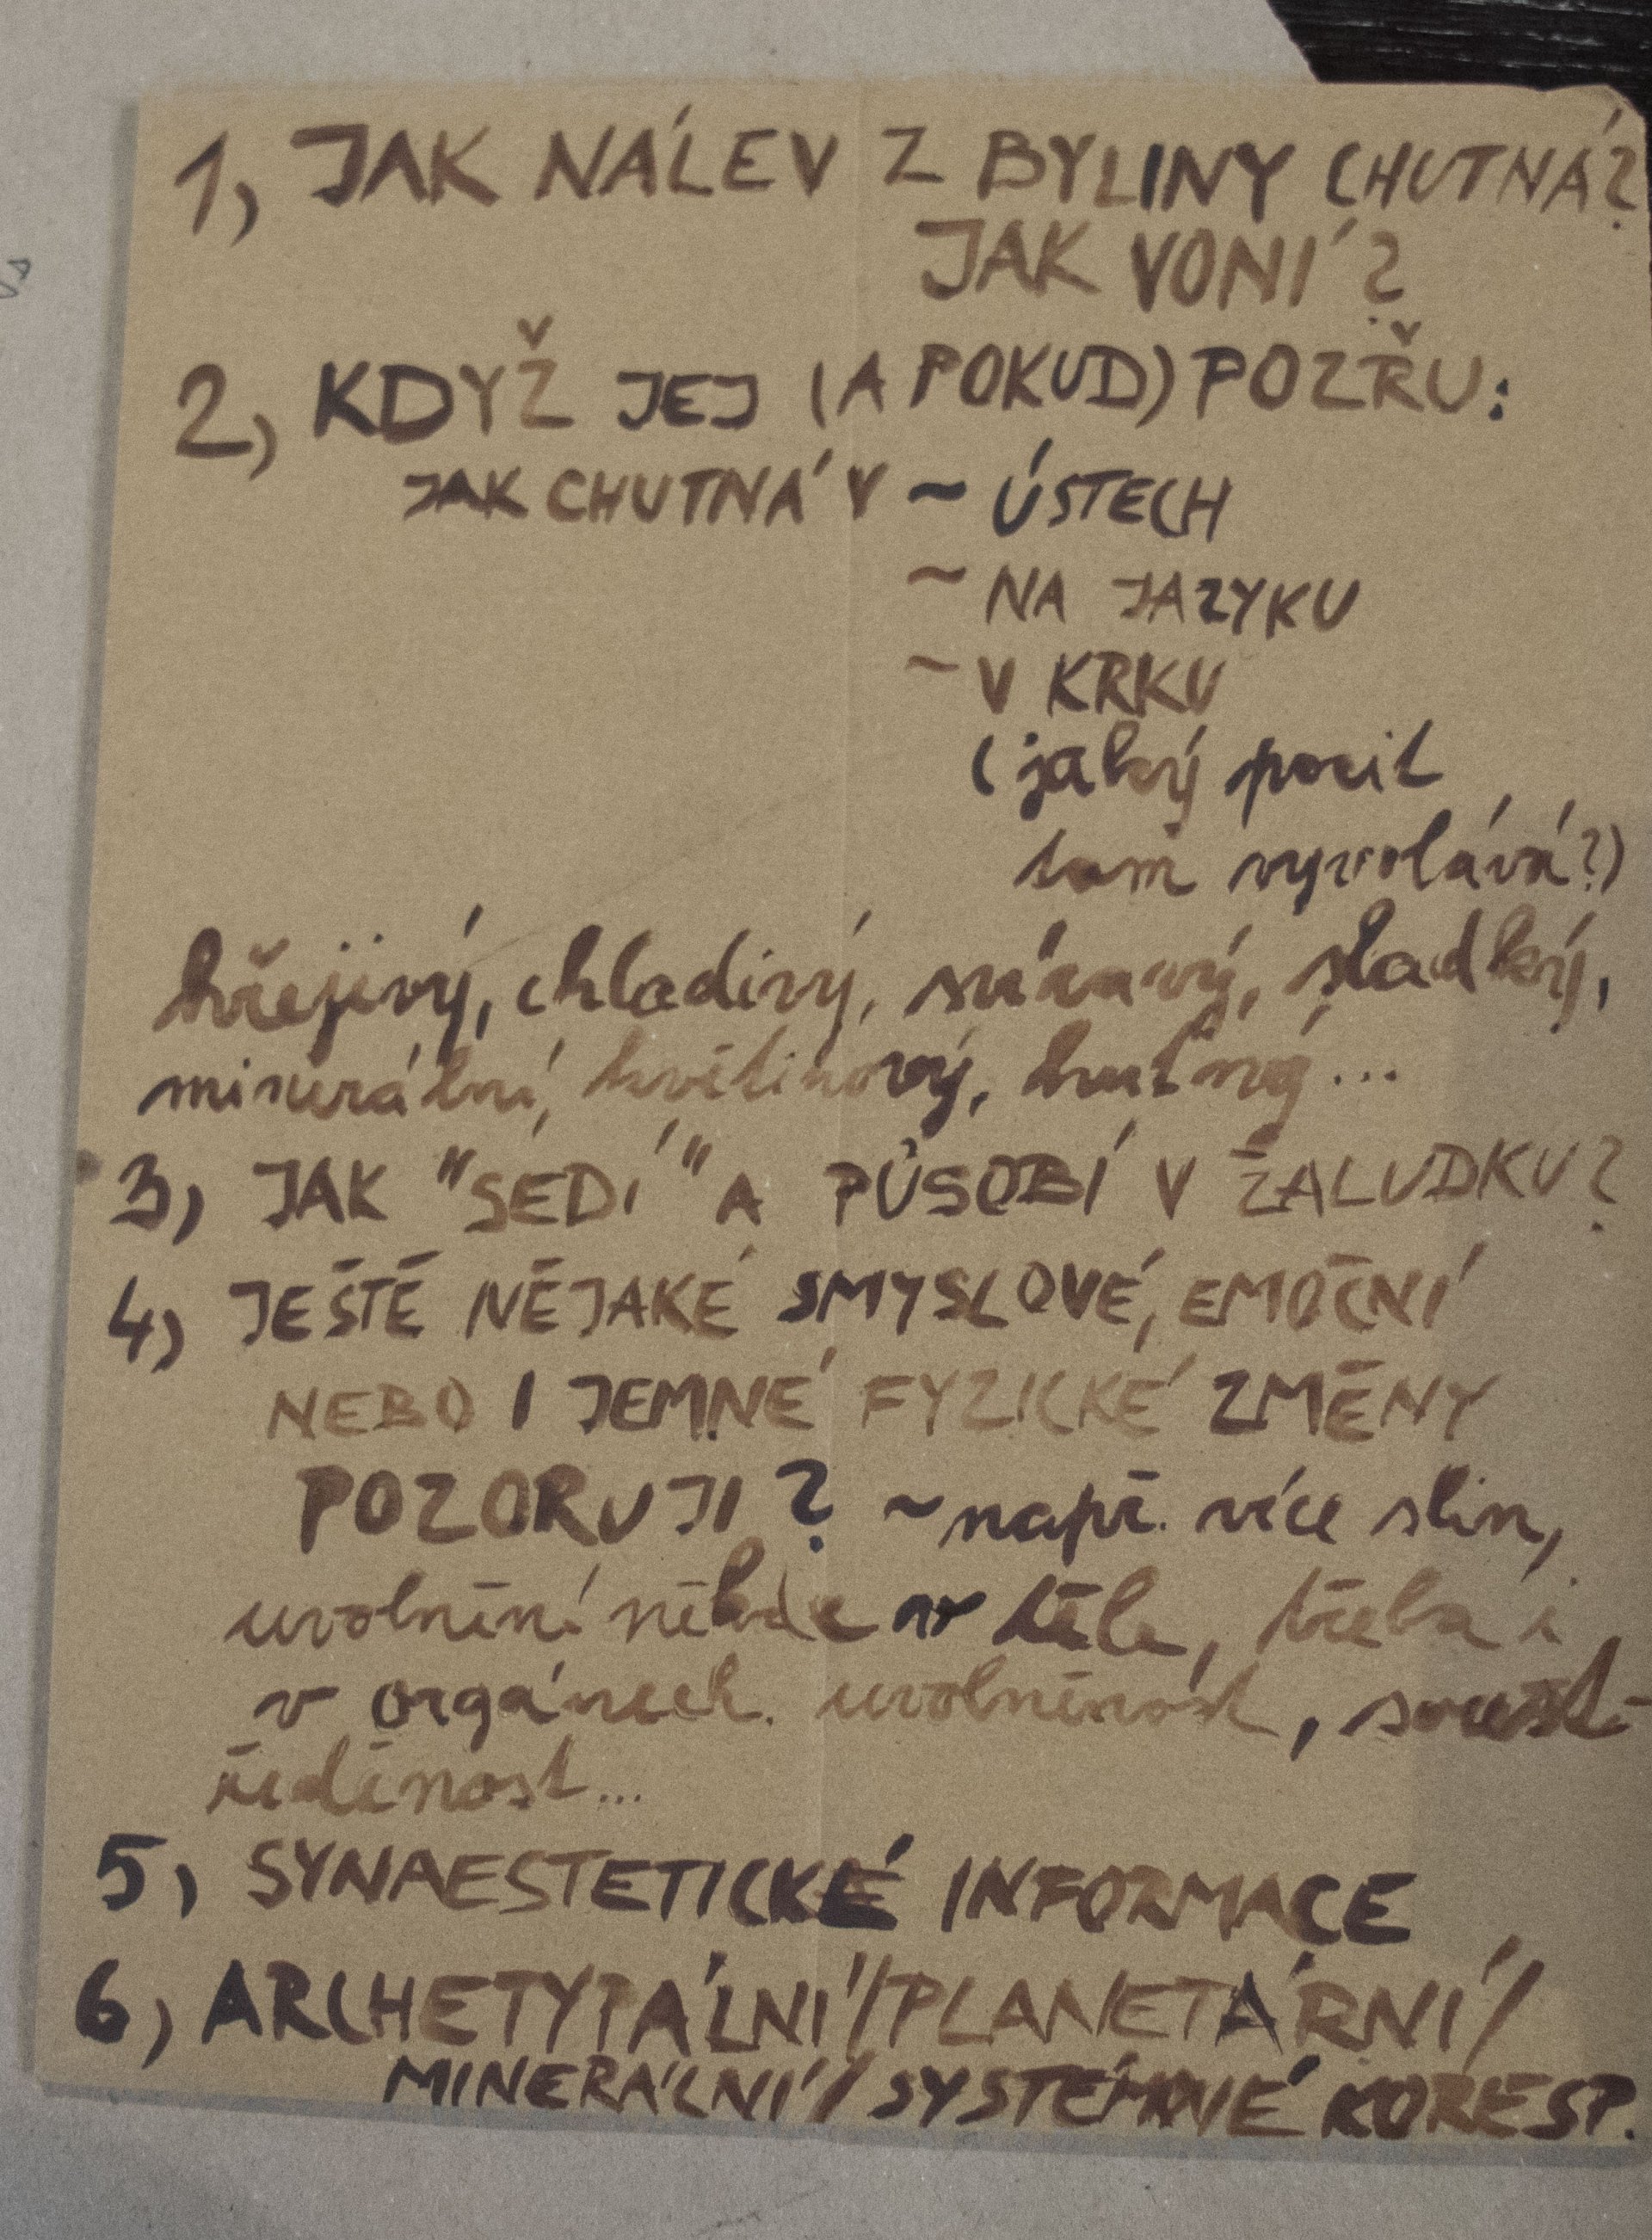 1, JAK NÁLEV Z BYLINY CHUTNÁ?
JAK VONÍ?
2, KDYŽ JEJ (A POKUD) POZŘU:
JAK CHUTNÁ V ~ ÚSTECH
~ NA JAZYKU
~ V KRKU
(jaký pocit
tam vyvolává?)
hřejivý, chladivý, svíravý, sladký,
minerální, květinový, hutný...
3, JAK "SEDÍ" A PŮSOBÍ V ŽALUDKU?
4, JEŠTĚ NĚJAKÉ SMYSLOVÉ, EMOČNÍ
NEBO I JEMNÉ FYZICKÉ ZMĚNY
POZORUJI? ~ např. více slin,
uvolnění někde v těle, třeba i
v orgánech. uvolněnost, soust-
ředěnost...
5, SYNAESTETICKÉ INFORMACE
6, ARCHETYPÁLNÍ/PLANETÁRNÍ/
MINERÁLNÍ/SYSTÉMOVÉ KORESP.